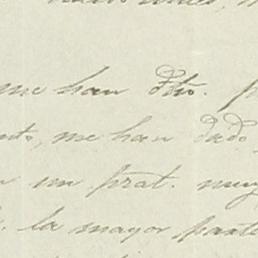 me han dho. p
nto, me han dado
n un prat. muy
la mayor parte